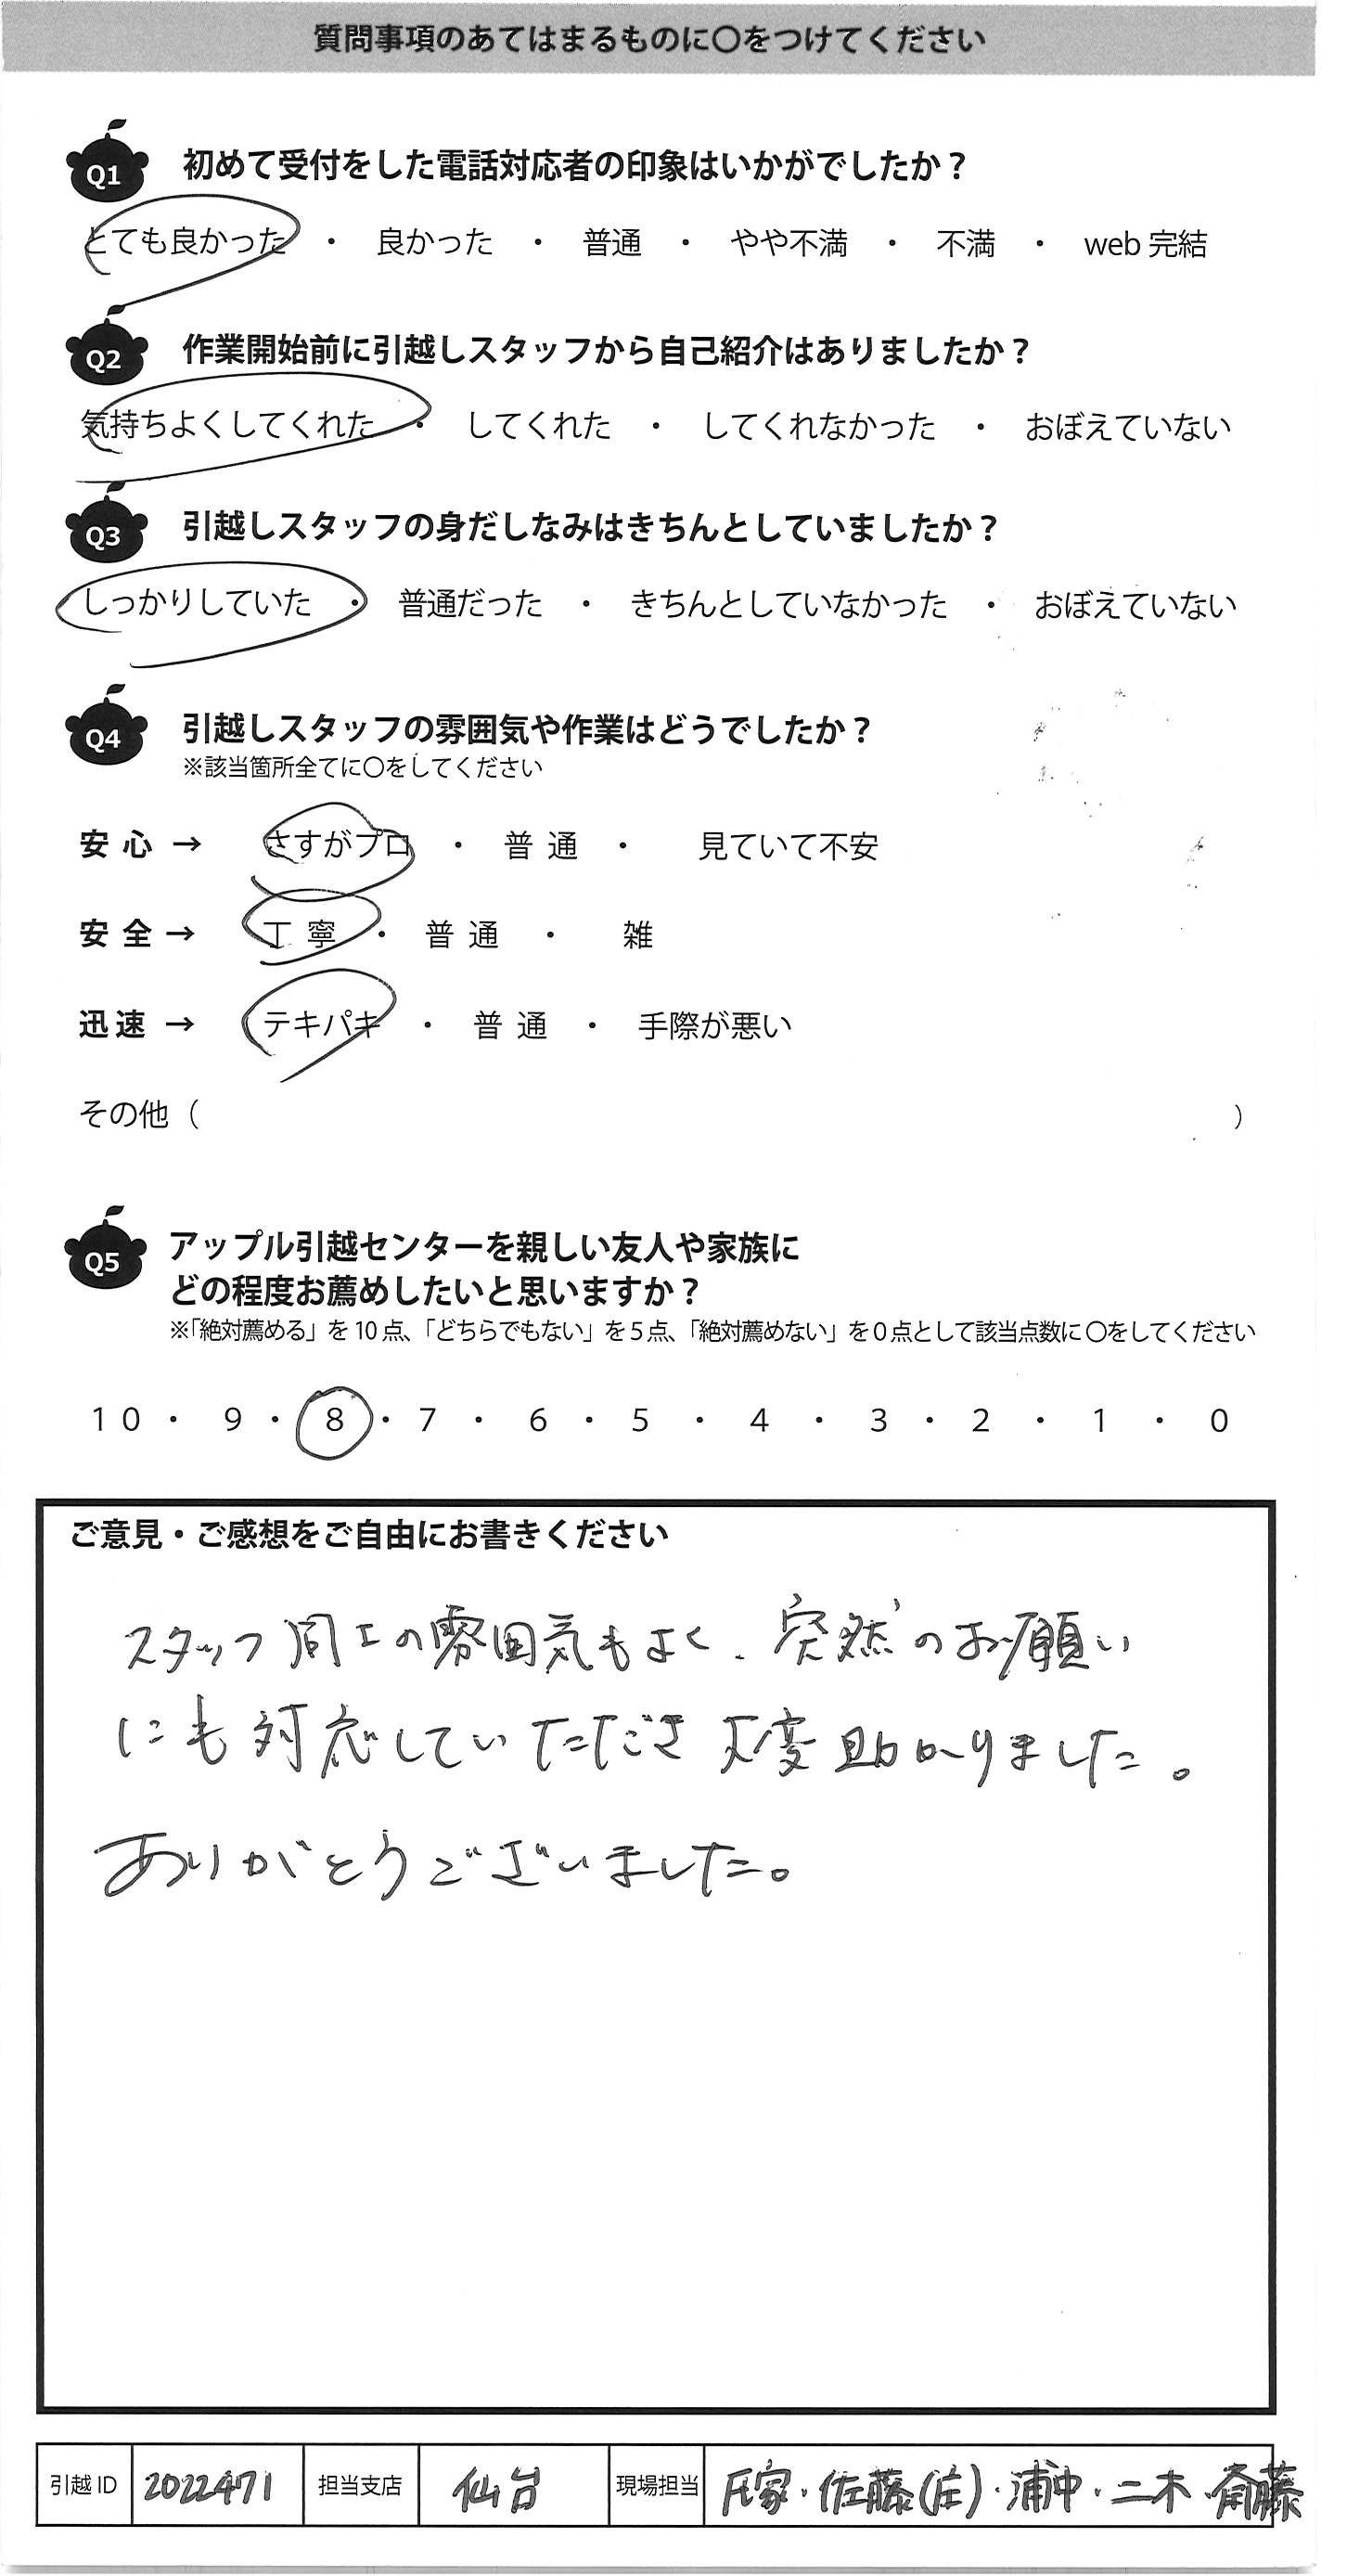 質問事項のあてはまるものに〇をつけてください
Q1 初めて受付をした電話対応者の印象はいかがでしたか？
とても良かった ・ 良かった ・ 普通 ・ やや不満 ・ 不満 ・ web 完結
Q2 作業開始前に引越しスタッフから自己紹介はありましたか？
気持ちよくしてくれた ・ してくれた ・ してくれなかった ・ おぼえていない
Q3 引越しスタッフの身だしなみはきちんとしていましたか？
しっかりしていた ・ 普通だった ・ きちんとしていなかった ・ おぼえていない
Q4 引越しスタッフの雰囲気や作業はどうでしたか？
※該当箇所全てに〇をしてください
安 心 → さすがプロ ・ 普 通 ・ 見ていて不安
安 全 → 丁 寧 ・ 普 通 ・ 雑
迅 速 → テキパキ ・ 普 通 ・ 手際が悪い
その他（ ）
Q5 アップル引越センターを親しい友人や家族に
どの程度お薦めしたいと思いますか？
※「絶対薦める」を 10 点、「どちらでもない」を 5 点、「絶対薦めない」を 0 点として該当点数に 〇をしてください
10 ・ 9 ・ 8 ・ 7 ・ 6 ・ 5 ・ 4 ・ 3 ・ 2 ・ 1 ・ 0
ご意見・ご感想をご自由にお書きください
スタッフ同士の雰囲気もよく、突然のお願い
にも対応していただき大変助かりました。
ありがとうございました。
引越 ID 2022471 担当支店 仙台 現場担当 氏家・佐藤(庄)・浦中・二木・斉藤